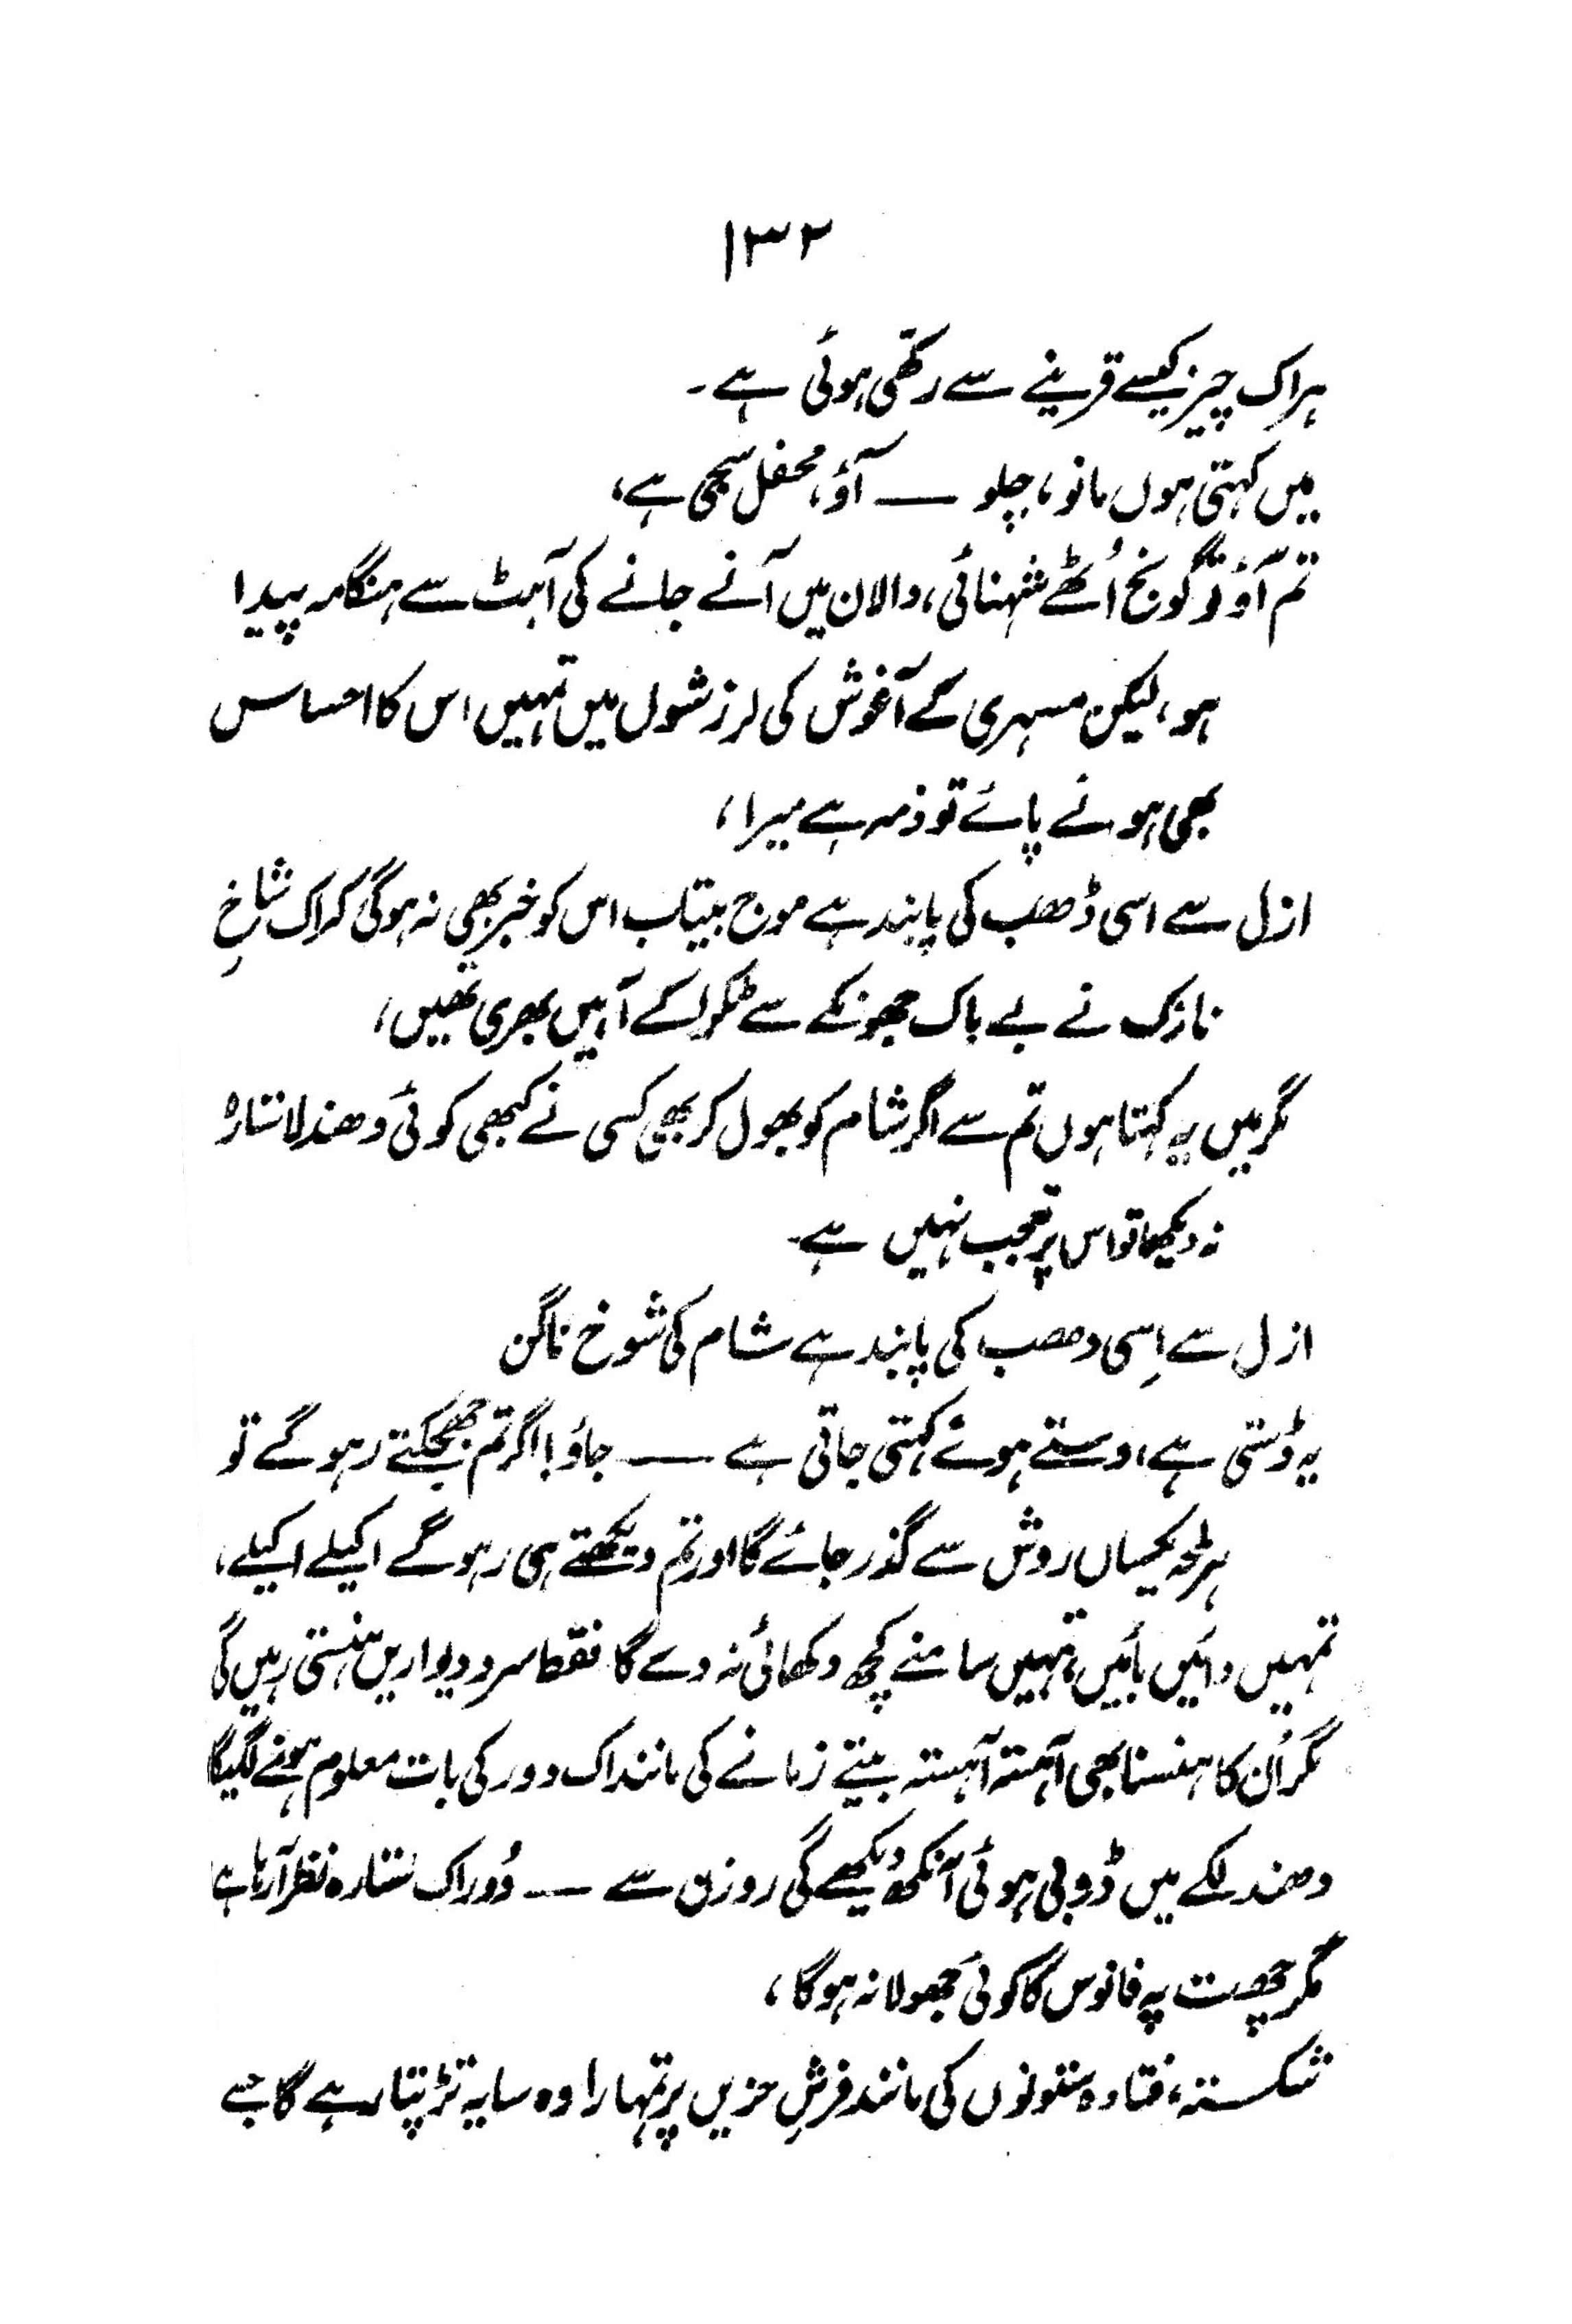 ۱۳۲
ہر اک چیز کیسے قرینے سے رکھی ہوئی ہے۔
میں کہتی ہوں مانو، چلو — آؤ، محفل سجی ہے،
تم آؤ تو گونج اُٹھے شہنائی، دالان میں آنے جانے کی آہٹ سے ہنگامہ پیدا
ہو، لیکن مسہری کے آغوش کی لرزشوں میں تمہیں اس کا احساس
بھی ہونے پائے تو ذمہ ہے میرا،
ازل سے اسی ڈھب کی پابند ہے موج بیتاب اس کو خبر بھی نہ ہوگی کہ اک شاخِ
نازک نے بے باک جھونکے سے ٹکرا کے آہیں بھری تھیں،
مگر میں یہ کہتا ہوں تم سے اگر شام کو بھول کر بھی کسی نے کبھی کوئی دھندلا ستارہ
نہ دیکھا تو اس پر تعجب نہیں ہے۔
ازل سے اِسی ڈھب کی پابند ہے شام کی شوخ ناگن
یہ ڈستی ہے، ڈستے ہوئے کہتی جاتی ہے — جاؤ! اگر تم جھجکتے رہو گے تو
ہر لمحہ یکساں روش سے گذر جائے گا اور تم دیکھتے ہی رہو گے اکیلے اکیلے،
تمہیں دائیں بائیں، تمہیں سامنے کچھ دکھائی نہ دے گا فقط سرد دیواریں ہنستی رہیں گی
مگر اُن کا ہنسنا بھی آہستہ آہستہ بیتے زمانے کی مانند اک دور کی بات معلوم ہونے لگیگا
دھندلکے میں ڈوبی ہوئی آنکھ دیکھے گی روزن سے — دُور اک ستارہ نظر آرہا ہے
مگر چھت پہ فانوس کا کوئی جھولا نہ ہوگا،
شکستہ، فتادہ ستونوں کی مانند فرشِ حزیں پر تمہارا وہ سایہ تڑپتا رہے گا جسے